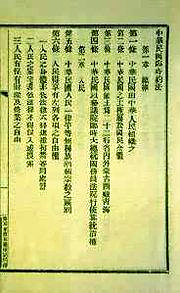 中華民國臨時約法
第一章 總綱
第一條 中華民國由中華人民組織之
第二條 中華民國之主權屬於國民全體
第三條 中華民國領土爲二十二行省內外蒙古西藏青海
第四條 中華民國以參議院臨時大總統國務員法院行使其統治權
第二章 人民
第五條 中華民國人民一律平等無種族階級宗教之區別
第六條 人民得享有左列各項之自由權
一 人民之身體非依法律不得逮捕拘禁審問處罰
二 人民之家宅非依法律不得侵入或搜索
三 人民有保有財產及營業之自由